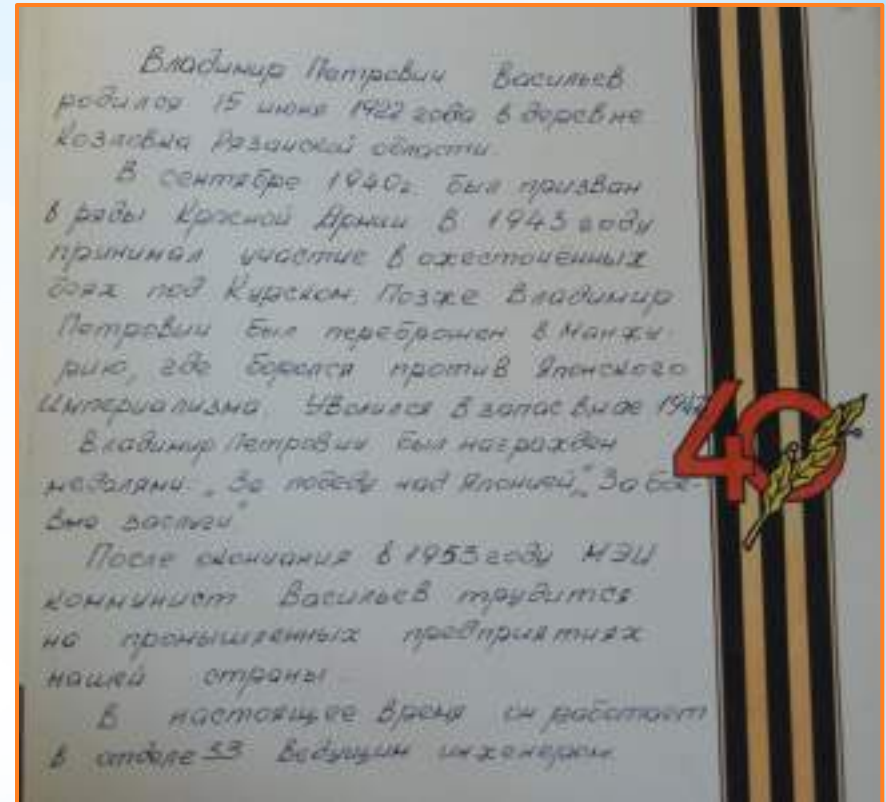 Владимир Петрович Васильев
родился 15 июня 1922 года в деревне
Рязанской области.
В сентябре 1940г. был призван
в ряды Красной Армии. В 1943 году
принимал участие в ожесточенных
боях под Курском. Позже Владимир
Петрович был переброшен в Манжу-
рию, где боролся против Японского
Империализма. Уволился в запас в мае
Владимир Петрович был награжден
медалями: „За победу над Японией", „За бое-
вые заслуги"
После окончания в 1953 году МЭИ
коммунист Васильев трудится
на промышленных предприятиях
нашей страны
В настоящее время он работает
в отделе 53 ведущим инженером.
40